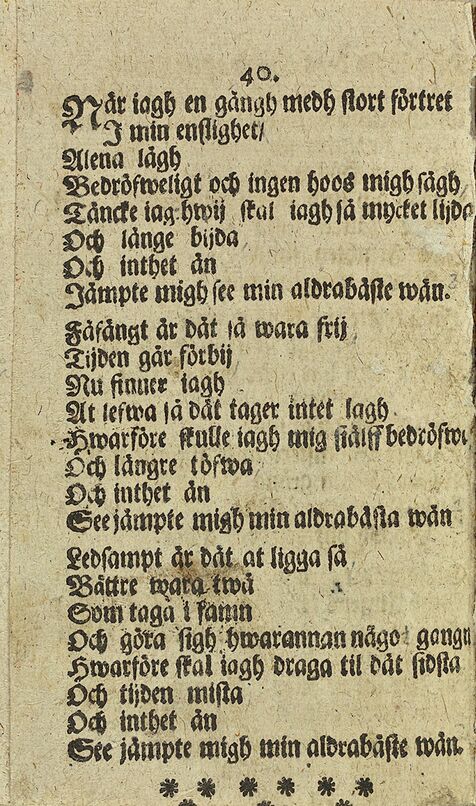 40.
När iagh en gångh medh stort förtret
I min enslighet/
Alena lågh
Bedröfweligt och ingen hoos migh sågh
Täncke iag hwij skal iagh så mycket lijda
Och länge bijda
Och inthet än
Jämpte migh see min aldrabäste wän.
Fåfängt är dät så wara frij
Tijden går förbij
Nu finner iagh
At lefwa så dät tager intet lagh
Hwarföre skulle iagh mig siälff bedröfwa
Och längre töfwa
Och inthet än
See jämpte migh min aldrabästa wän
Ledsampt är dät at ligga så
Bättre wara twå
Som taga i famn
Och göra sigh hwarannan något gangn
Hwarföre skal iagh draga til dät sidsta
Och tijden mista
Och inthet än
See jämpte migh min aldrabäste wän.
* * * * * *